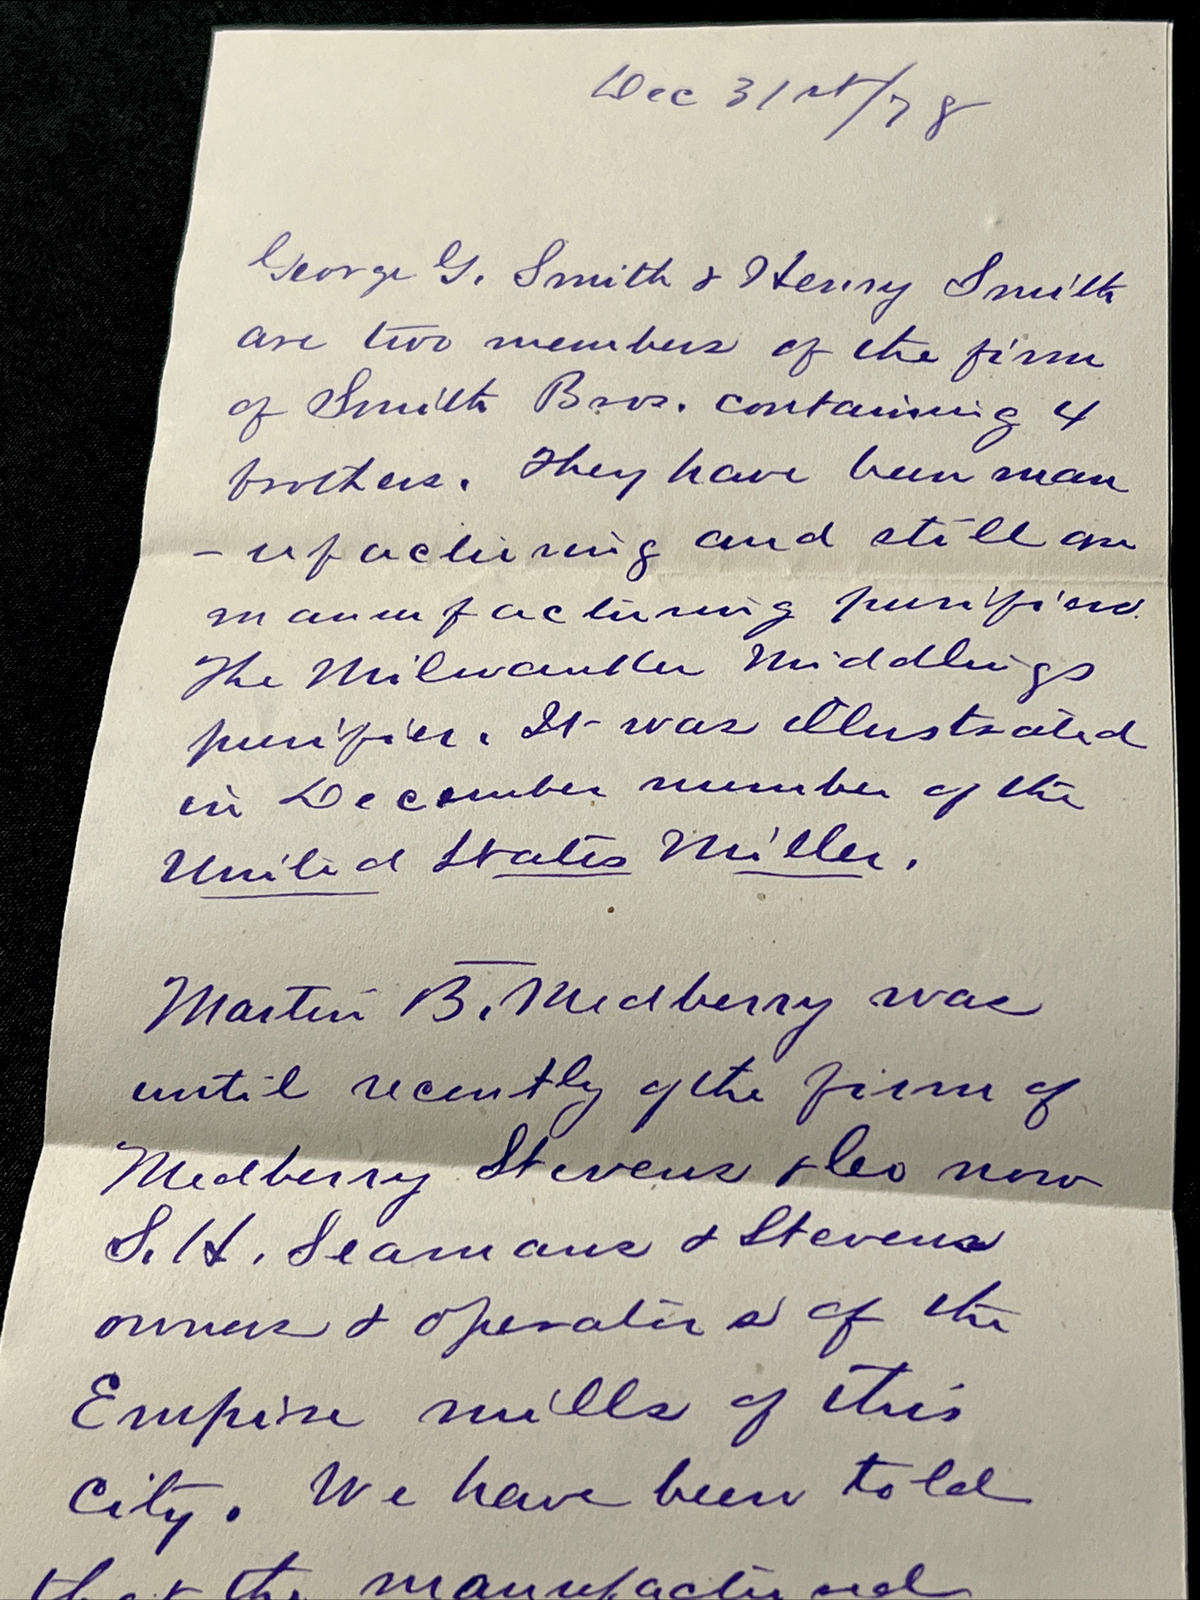 Dec 31st/78
George G. Smith & Henry Smith
are two members of the firm
of Smith Bros. containing 4
brothers. They have been man
- ufacturing and still are
manufacturing purifiers.
The Milwaukee Middlings
purifier. It was illustrated
in December number of the
United States Miller.
Martin B. Medberry was
until recently of the firm of
Medberry Stevens & Co now
S. H. Seamans & Stevens
owners & operators of the
Empire mills of this
city. We have been told
that the manufactured